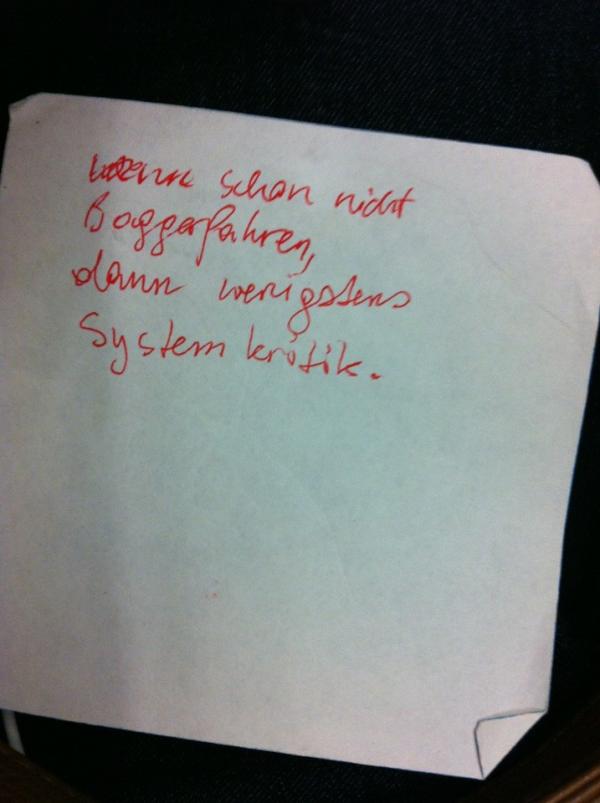 wenn schon nicht
Baggerfahren,
dann wenigstens
Systemkritik.